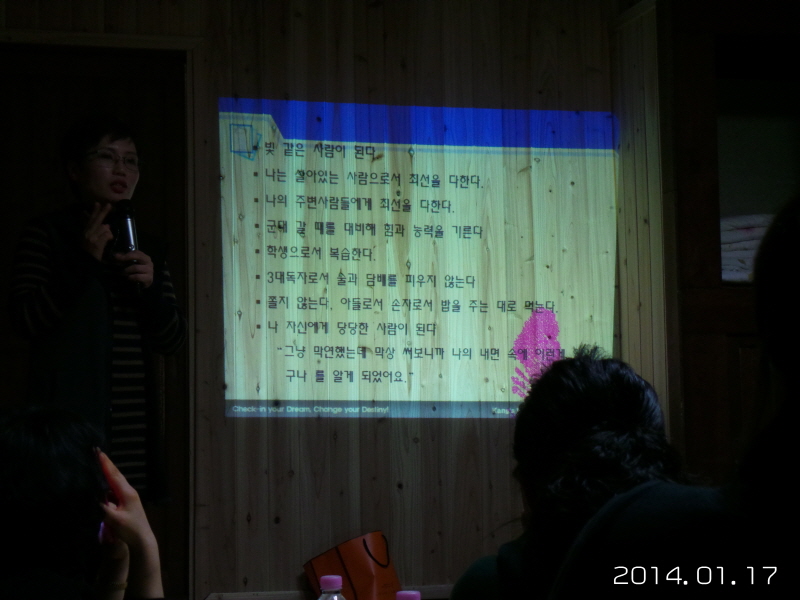 빛 같은 사람이 된다
• 나는 살아있는 사람으로서 최선을 다한다.
• 나의 주변사람들에게 최선을 다한다.
• 군대 갈 때를 대비해 힘과 능력을 기른다
• 학생으로서 복습한다.
• 3대독자로서 술과 담배를 피우지 않는다
• 졸지 않는다. 아들로서 손자로서 밥을 주는 대로 먹는다.
• 나 자신에게 당당한 사람이 된다
"그냥 막연했는데 막상 써보니까 나의 내면 속에 이런게
구나 를 알게 되었어요."
Check-in your Dream, Change your Destiny!
2014.01.17